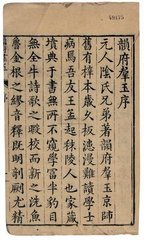 49175
韻府羣玉序
元人陰氏兄弟著韻府羣玉京師
舊有梓本歲久板漶漫難讀學士
病焉吾友王孟起秣陵人也家藏
墳典于書無所不窺學富半豹目
無全牛詩歌之暇校而新之洗魚
魯金根之謬音釋既明剞劂尤精